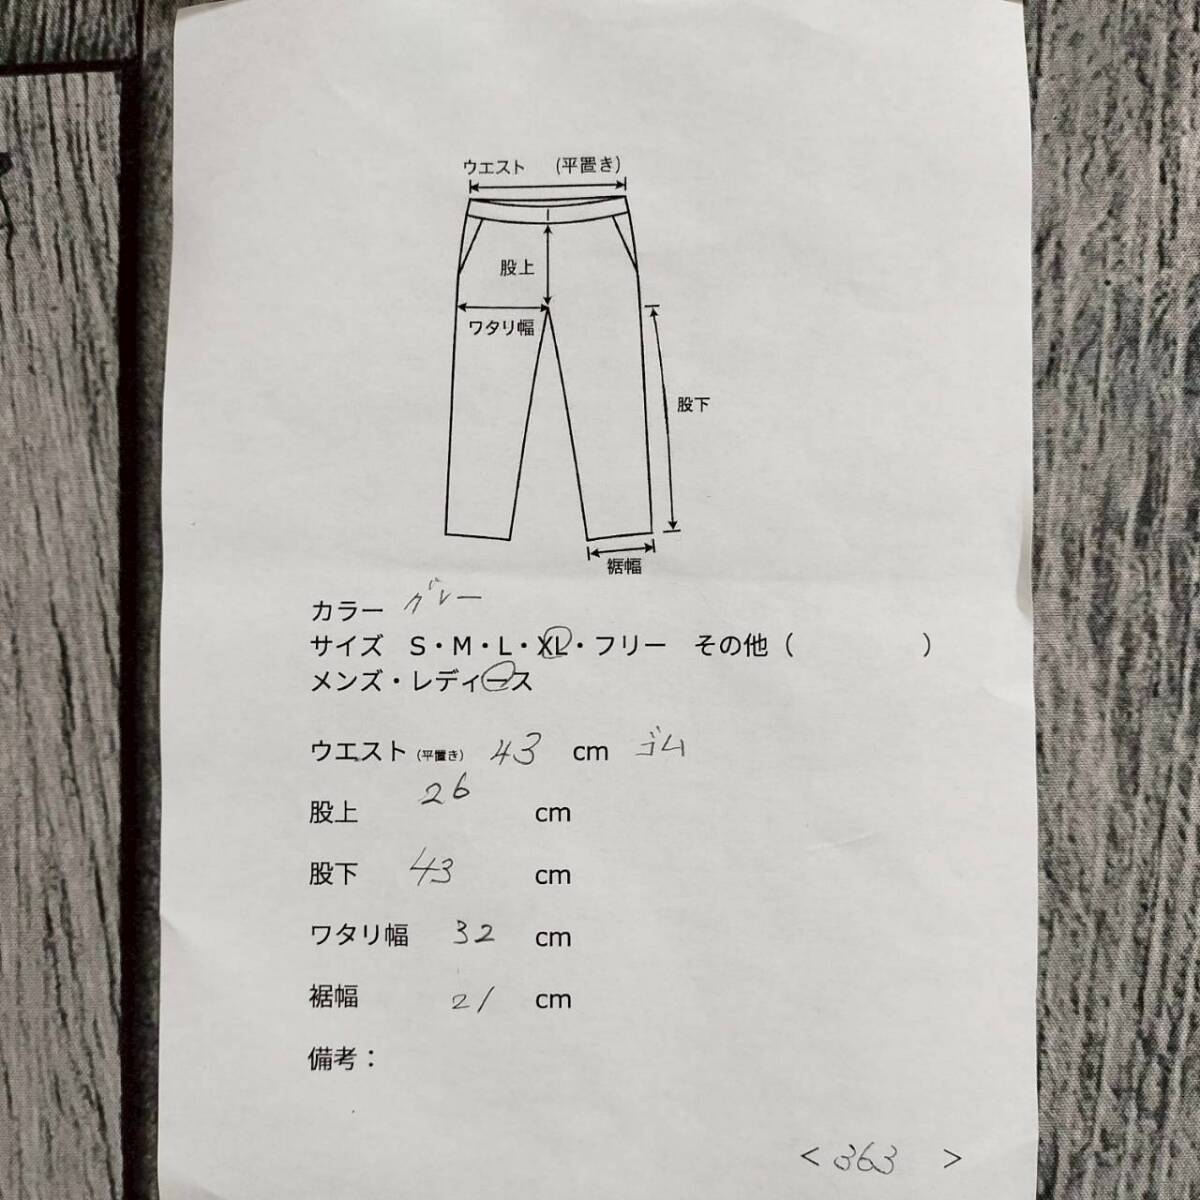 ウエスト (平置き)
股上
ワタリ幅
股下
裾幅
カラー グレー
サイズ S・M・L・XL・フリー その他 ( )
メンズ・レディース
ウエスト (平置き) 43 cm ゴム
股上 26 cm
股下 43 cm
ワタリ幅 32 cm
裾幅 21 cm
備考：
< 363 >